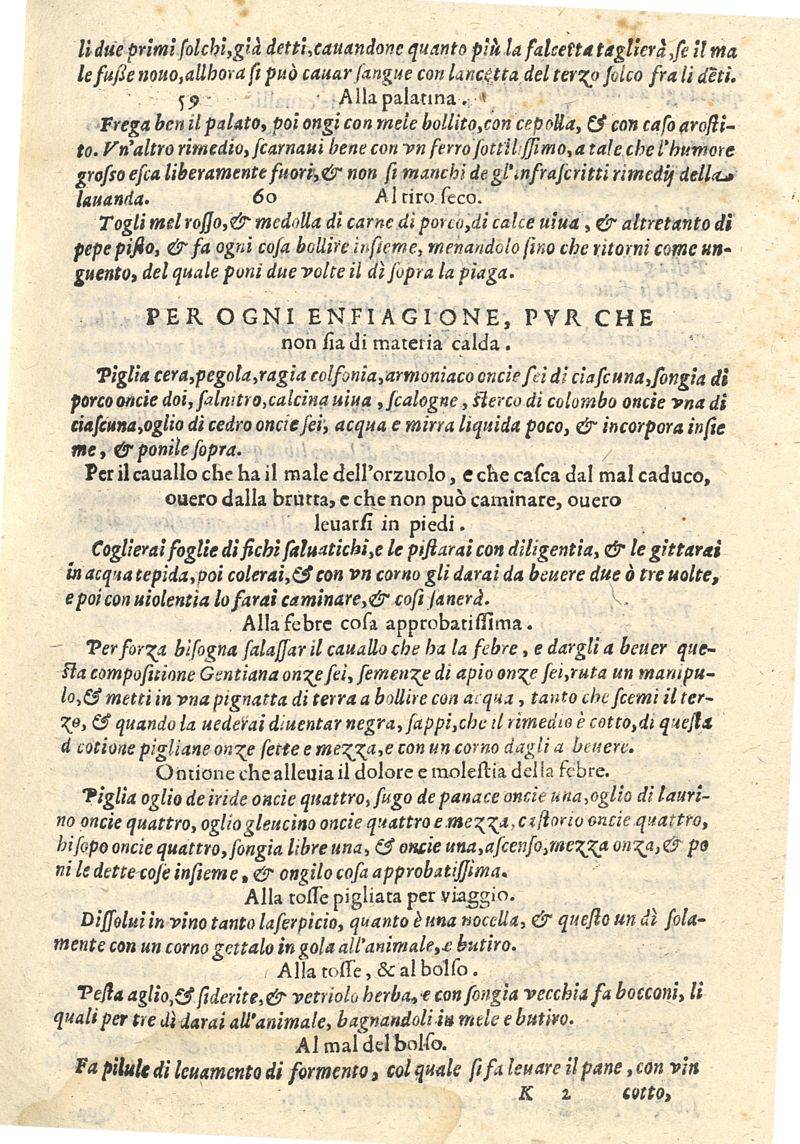 li due primi solchi, già detti, cauandone quanto più la falcetta taglierà, se il ma
le fuße nouo, allhora si può cauar sangue con lancetta del terzo solco fra li deti.
59 Alla palatina.
Frega ben il palato, poi ongi con mele bollito, con cepolla, & con caso arosti-
to. Vn'altro rimedio, scarnaui bene con vn ferro sottilissimo, a tale che l'humore
grosso esca liberamente fuori, & non si manchi de gl'infrascritti rimedij della
lauanda. 60 Al tiro seco.
Togli mel rosso, & medolla di carne di porco, di calce uiua, & altretanto di
pepe pisto, & fa ogni cosa bollire insieme, menandolo sino che ritorni come un-
guento, del quale poni due volte il dì sopra la piaga.
PER OGNI ENFIAGIONE, PVR CHE
non sia di materia calda.
Piglia cera, pegola, ragia colfonia, armoniaco oncie sei di ciascuna, songia di
porco oncie doi, salnitro, calcina uiua, scalogne, sterco di colombo oncie vna di
ciascuna, oglio di cedro oncie sei, acqua e mirra liquida poco, & incorpora insie
me, & ponile sopra.
Per il cauallo che ha il male dell'orzuolo, e che casca dal mal caduco,
ouero dalla brutta, e che non può caminare, ouero
leuarsi in piedi.
Coglierai foglie di fichi saluatichi, e le pistarai con diligentia, & le gittarai
in acqua tepida, poi colerai, & con vn corno gli darai da beuere due ò tre uolte,
e poi con uiolentia lo farai caminare, & così sanerà.
Alla febre cosa approbatissima.
Per forza bisogna salassar il cauallo che ha la febre, e dargli a beuer que-
sta compositione Gentiana onze sei, semenze di apio onze sei, ruta un manipu-
lo, & metti in vna pignatta di terra a bollire con acqua, tanto che scemi il ter-
zo, & quando la uederai diuentar negra, sappi, che il rimedio è cotto, di questa
d cotione pigliane onze sette e mezza, e con un corno dagli a beuere.
Ontione che alleuia il dolore e molestia della febre.
Piglia oglio de iride oncie quattro, sugo de panace oncie una, oglio di lauri-
no oncie quattro, oglio gleucino oncie quattro e mezza, castorio oncie quattro,
hisopo oncie quattro, songia libre una, & oncie una, ascenso, mezza onza, & po
ni le dette cose insieme, & ongilo cosa approbatissima.
Alla tosse pigliata per viaggio.
Dissolui in vino tanto laserpicio, quanto è una nocella, & questo un dì sola-
mente con un corno gettalo in gola all'animale, e butiro.
Alla tosse, & al bolso.
Pesta aglio, & siderite, & vetriolo herba, e con songia vecchia fa bocconi, li
quali per tre dì darai all'animale, bagnandoli in mele e butiro.
Al mal del bolso.
Fa pilule di leuamento di formento, col quale si fa leuare il pane, con vin
K 2 cotto,